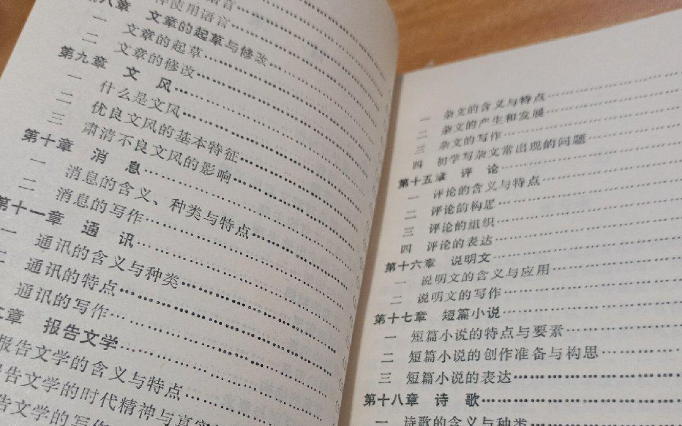 使用语言
第八章 文章的起草与修改
一 文章的起草
二 文章的修改
第九章 文风
一 什么是文风
二 优良文风的基本特征
三 肃清不良文风的影响
第十章 消息
一 消息的含义、种类与特点
二 消息的写作
第十一章 通讯
一 通讯的含义与种类
二 通讯的特点
通讯的写作
二章 报告文学
报告文学的含义与特点
报告文学的时代精神与真实
告文学的写作
一 杂文的含义与特点
二 杂文的产生和发展
三 杂文的写作
四 初学写杂文常出现的问题
第十五章 评论
一 评论的含义与特点
二 评论的构思
三 评论的组织
四 评论的表达
第十六章 说明文
一 说明文的含义与应用
二 说明文的写作
第十七章 短篇小说
一 短篇小说的特点与要素
二 短篇小说的创作准备与构思
三 短篇小说的表达
第十八章 诗歌
一 诗歌的含义与种类